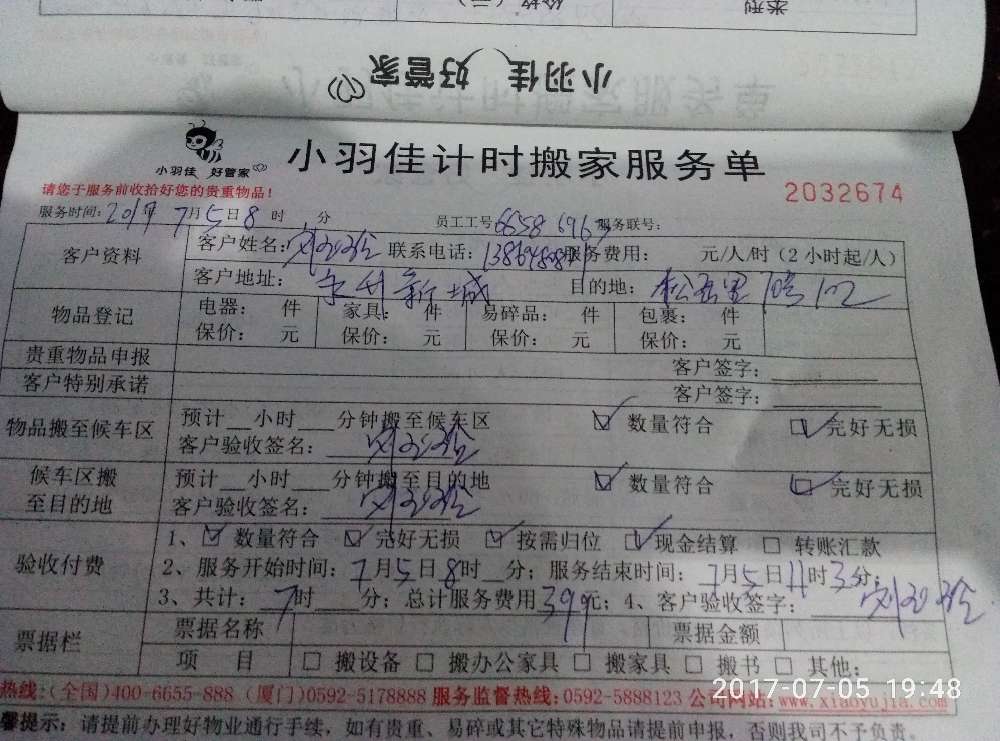 类型 价格（元）
小羽佳 好管家
小羽佳 好管家
小羽佳计时搬家服务单
2032674
请您于服务前收拾好您的贵重物品！
服务时间：2017年 7月5日8时 分 员工工号 6658 696 服务联号：
客户资料
客户姓名： 联系电话： 服务费用： 元/人/时（2小时起/人）
客户地址： 新城 目的地： 松岳里
物品登记
电器： 件 家具： 件 易碎品： 件 包裹： 件
保价： 元 保价： 元 保价： 元 保价： 元
贵重物品申报 客户签字：
客户特别承诺 客户签字：
物品搬至候车区
预计__小时___分钟搬至候车区 ☑ 数量符合 ☑ 完好无损
客户验收签名：
候车区搬至目的地
预计__小时___分钟搬至目的地 ☑ 数量符合 ☑ 完好无损
客户验收签名：
验收付费
1、☑ 数量符合 ☑ 完好无损 ☑ 按需归位 ☑ 现金结算 □ 转账汇款
2、服务开始时间：7月5日8时_分；服务结束时间：7月5日11时3分；
3、共计：7时__分；总计服务费用399元；4、客户验收签字：
票据栏
票据名称 票据金额
项 目 □ 搬设备 □ 搬办公家具 □ 搬家具 □ 搬书 □ 其他：
热线：（全国）400-6655-888（厦门）0592-5178888 服务监督热线：0592-5888123 公司网站：www.xiaoyujia.com
2017-07-05 19:48
馨提示：请提前办理好物业通行手续，如有贵重、易碎或其它特殊物品请提前申报，否则我司不予负责。